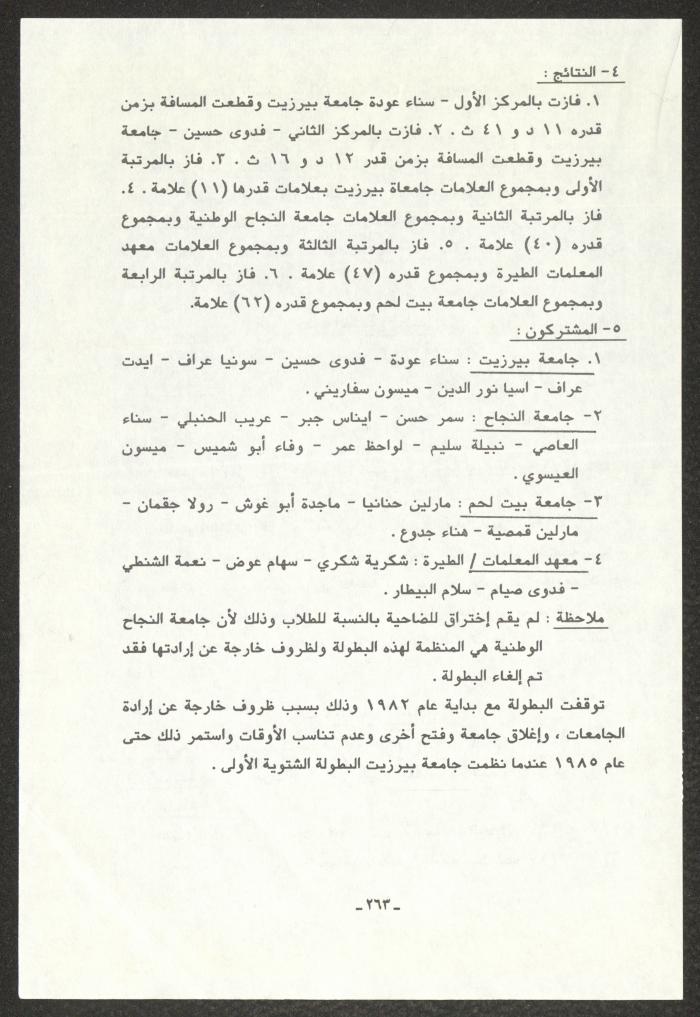 ٤- النتائج :
١. فازت بالمركز الأول - سناء عودة جامعة بيرزيت وقطعت المسافة بزمن
قدره ١١ د و ٤١ ث . ٢. فازت بالمركز الثاني - فدوى حسين - جامعة
بيرزيت وقطعت المسافة بزمن قدر ١٢ د و ١٦ ث . ٣. فاز بالمرتبة
الأولى وبمجموع العلامات جامعاة بيرزيت بعلامات قدرها (١١) علامة . ٤.
فاز بالمرتبة الثانية وبمجموع العلامات جامعة النجاح الوطنية وبمجموع
قدره (٤٠) علامة . ٥. فاز بالمرتبة الثالثة وبمجموع العلامات معهد
المعلمات الطيرة وبمجموع قدره (٤٧) علامة . ٦. فاز بالمرتبة الرابعة
وبمجموع العلامات جامعة بيت لحم وبمجموع قدره (٦٢) علامة.
٥- المشتركون :
١. جامعة بيرزيت : سناء عودة - فدوى حسين - سونيا عراف - ايدت
عراف - اسيا نور الدين - ميسون سفاريني .
٢- جامعة النجاح : سمر حسن - ايناس جبر - عريب الحنبلي - سناء
العاصي - نبيلة سليم - لواحظ عمر - وفاء أبو شميس - ميسون
العيسوي .
٣- جامعة بيت لحم : مارلين حنانيا - ماجدة أبو غوش - رولا جقمان -
مارلين قمصية - هناء جدوع .
٤- معهد المعلمات / الطيرة : شكرية شكري - سهام عوض - نعمة الشنطي
- فدوى صيام - سلام البيطار .
ملاحظة : لم يقم إختراق للضاحية بالنسبة للطلاب وذلك لأن جامعة النجاح
الوطنية هي المنظمة لهذه البطولة ولظروف خارجة عن إرادتها فقد
تم إلغاء البطولة .
توقفت البطولة مع بداية عام ١٩٨٢ وذلك بسبب ظروف خارجة عن إرادة
الجامعات ، وإغلاق جامعة وفتح أخرى وعدم تناسب الأوقات واستمر ذلك حتى
عام ١٩٨٥ عندما نظمت جامعة بيرزيت البطولة الشتوية الأولى .
ـ ٢٦٣ ـ